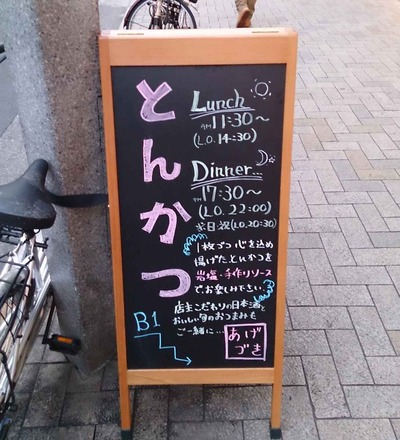 とんかつ
Lunch
AM 11:30〜
(L.O. 14:30)
Dinner...
PM 17:30〜
(L.O. 22:00)
日・祝(L.O 20:30)
1枚づつ 心を込め
揚げたとんかつを
岩塩・手作りソース
でお楽しみ下さい
店主こだわりの日本酒と
おいしい旬のおつまみも
ご一緒に...
B1
あげ
づき